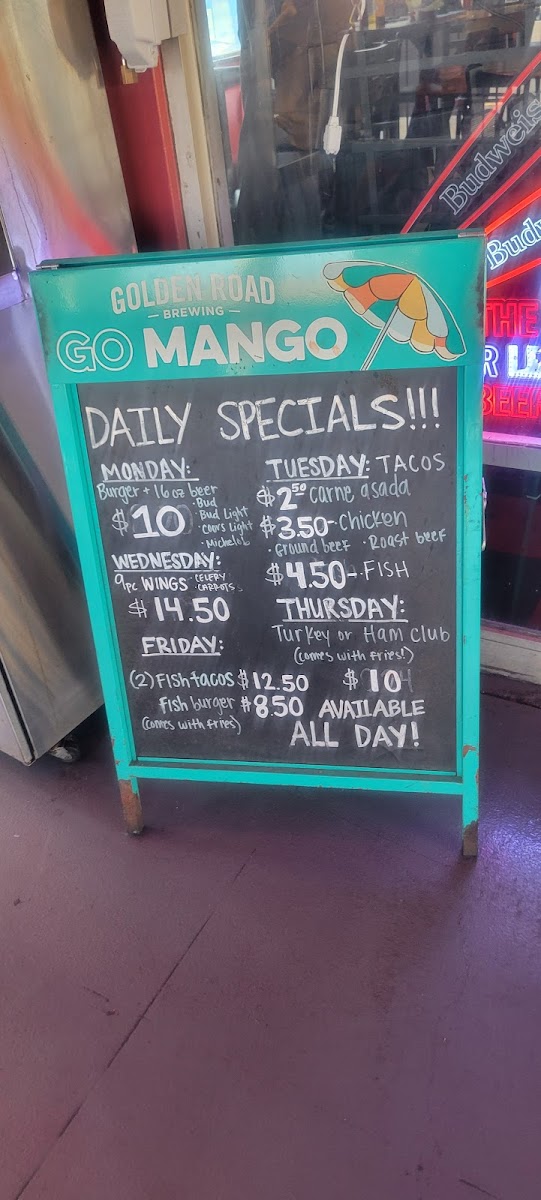 GOLDEN ROAD
— BREWING —
GO MANGO
DAILY SPECIALS!!!
MONDAY:
Burger + 16 oz beer
$10
· Bud
· Bud Light
· Coors Light
· Michelob
TUESDAY: TACOS
$2.50 carne asada
$3.50- Chicken
· Ground beef · Roast beef
$4.50- FISH
WEDNESDAY:
9pc WINGS · CELERY
CARROTS
$14.50
THURSDAY:
Turkey or Ham Club
(comes with fries!)
$10
FRIDAY:
(2) Fish tacos $12.50
fish burger $8.50
(comes with fries)
AVAILABLE
ALL DAY!
Budweis
Budw
THE
BEER